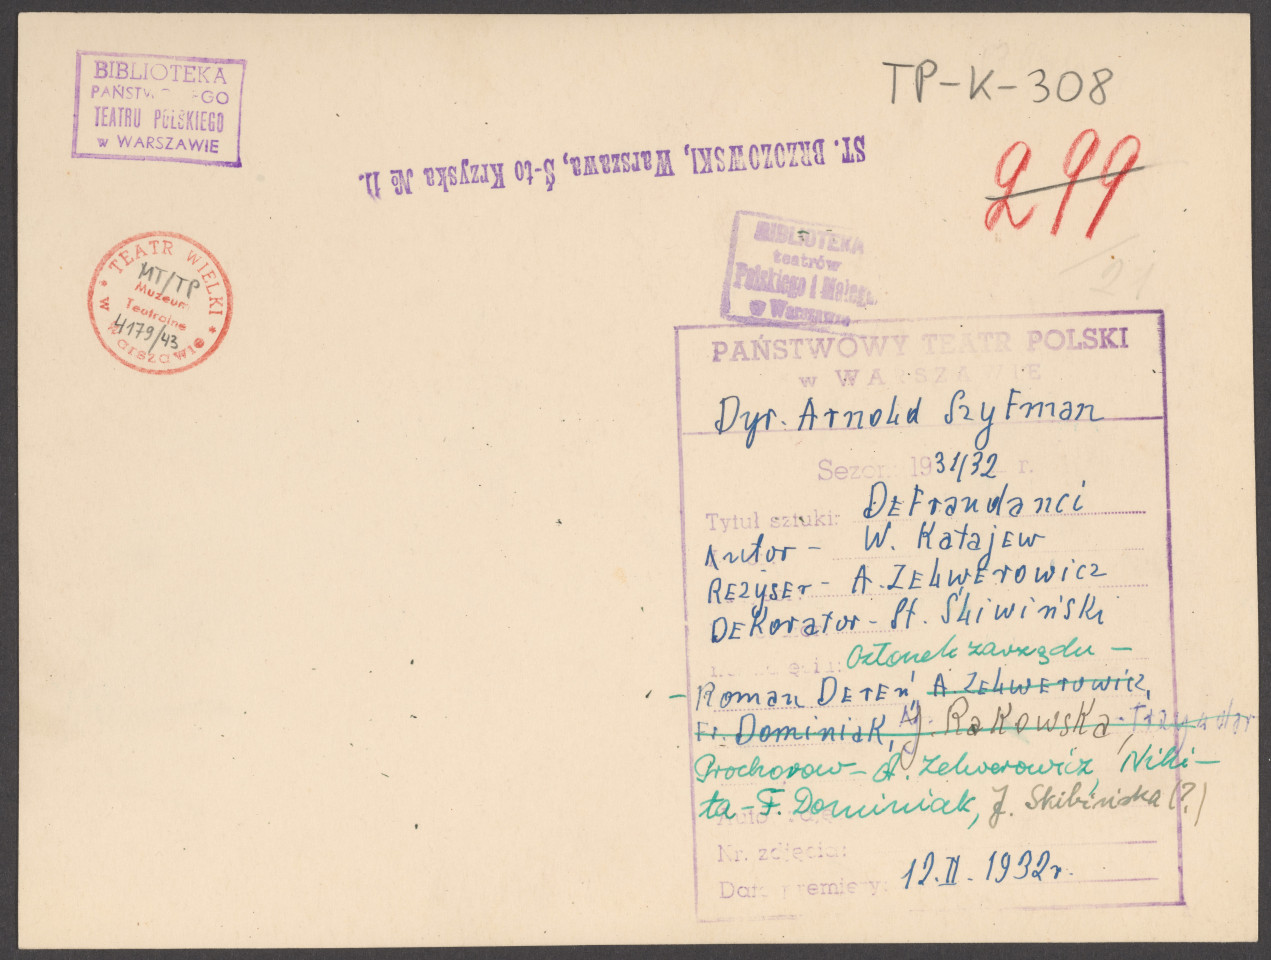 BIBLIOTEKA
PAŃSTW GO
TEATRU POLSKIEGO
w WARSZAWIE
TP-K-308
ST. BRZOZOWSKI, Warszawa, Ś-to Krzyska № 11.
299
21
TEATR WIELKI
w Warszawie
MT/TP
Muzeum
Teatralne
4179/43
BIBLIOTEKA
teatrów
Polskiego i Małego
w Warszawie
PAŃSTWOWY TEATR POLSKI
w WARSZAWIE
Dyr. Arnold Szyfman
Sezon 1931/32 r.
Tytuł sztuki: Defraudanci
Autor - W. Katajew
Reżyser - A. Zelwerowicz
Dekorator - St. Śliwiński
członek zarządu -
- Roman Dereń, A. Zelwerowicz,
Fr. Dominiak, J. Rakowska,
Prochorow - A. Zelwerowicz, Niki-
ta - F. Dominiak, J. Skibińska (?)
Nr. zdjęcia:
Data premiery: 12.II.1932r.